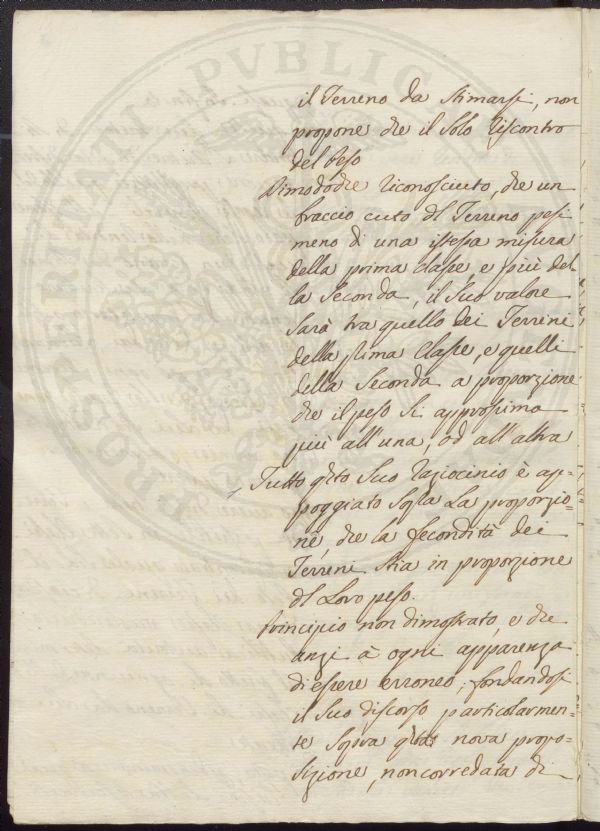 il Terreno da stimarsi, non
propone che il solo riscontro
del peso
Dimodoche riconosciuto, che un
braccio cubo dl Terreno pesi
meno di una istessa misura
della prima classe, e più del-
la seconda, il suo valore
sarà tra quello dei Terreni
della prima classe, e quelli
della seconda a proporzione
che il peso si approssima
più all'una, od all'altra
Tutto qsto suo raziocinio è ap-
poggiato sopra la proporzio-
ne, che la fecondità dei
Terreni stia in proporzione
dl loro peso.
Principio non dimostrato, e che
anzi à ogni apparenza
di essere erroneo; fondandosi
il suo discorso particolarmen-
te sopra qsta nova propo-
sizione, non corredata di
PROSPERITATI PUBLICAE